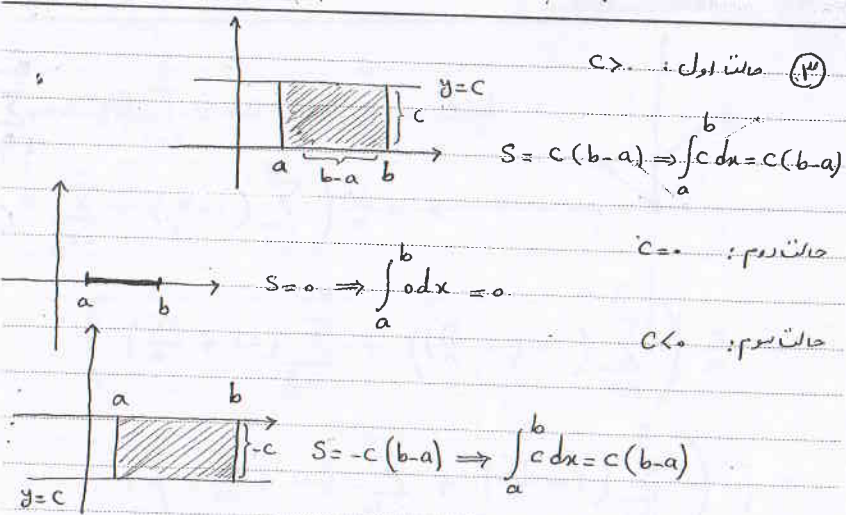 ۳) حالت اول: c>۰
y=c
c
a b-a b
S = c(b-a) ⇒ ∫_a^b c dx = c(b-a)
حالت دوم: c=۰
a b
S=0 ⇒ ∫_a^b 0 dx = 0
حالت سوم: c<۰
a b
-c
y=c
S = -c(b-a) ⇒ ∫_a^b c dx = c(b-a)